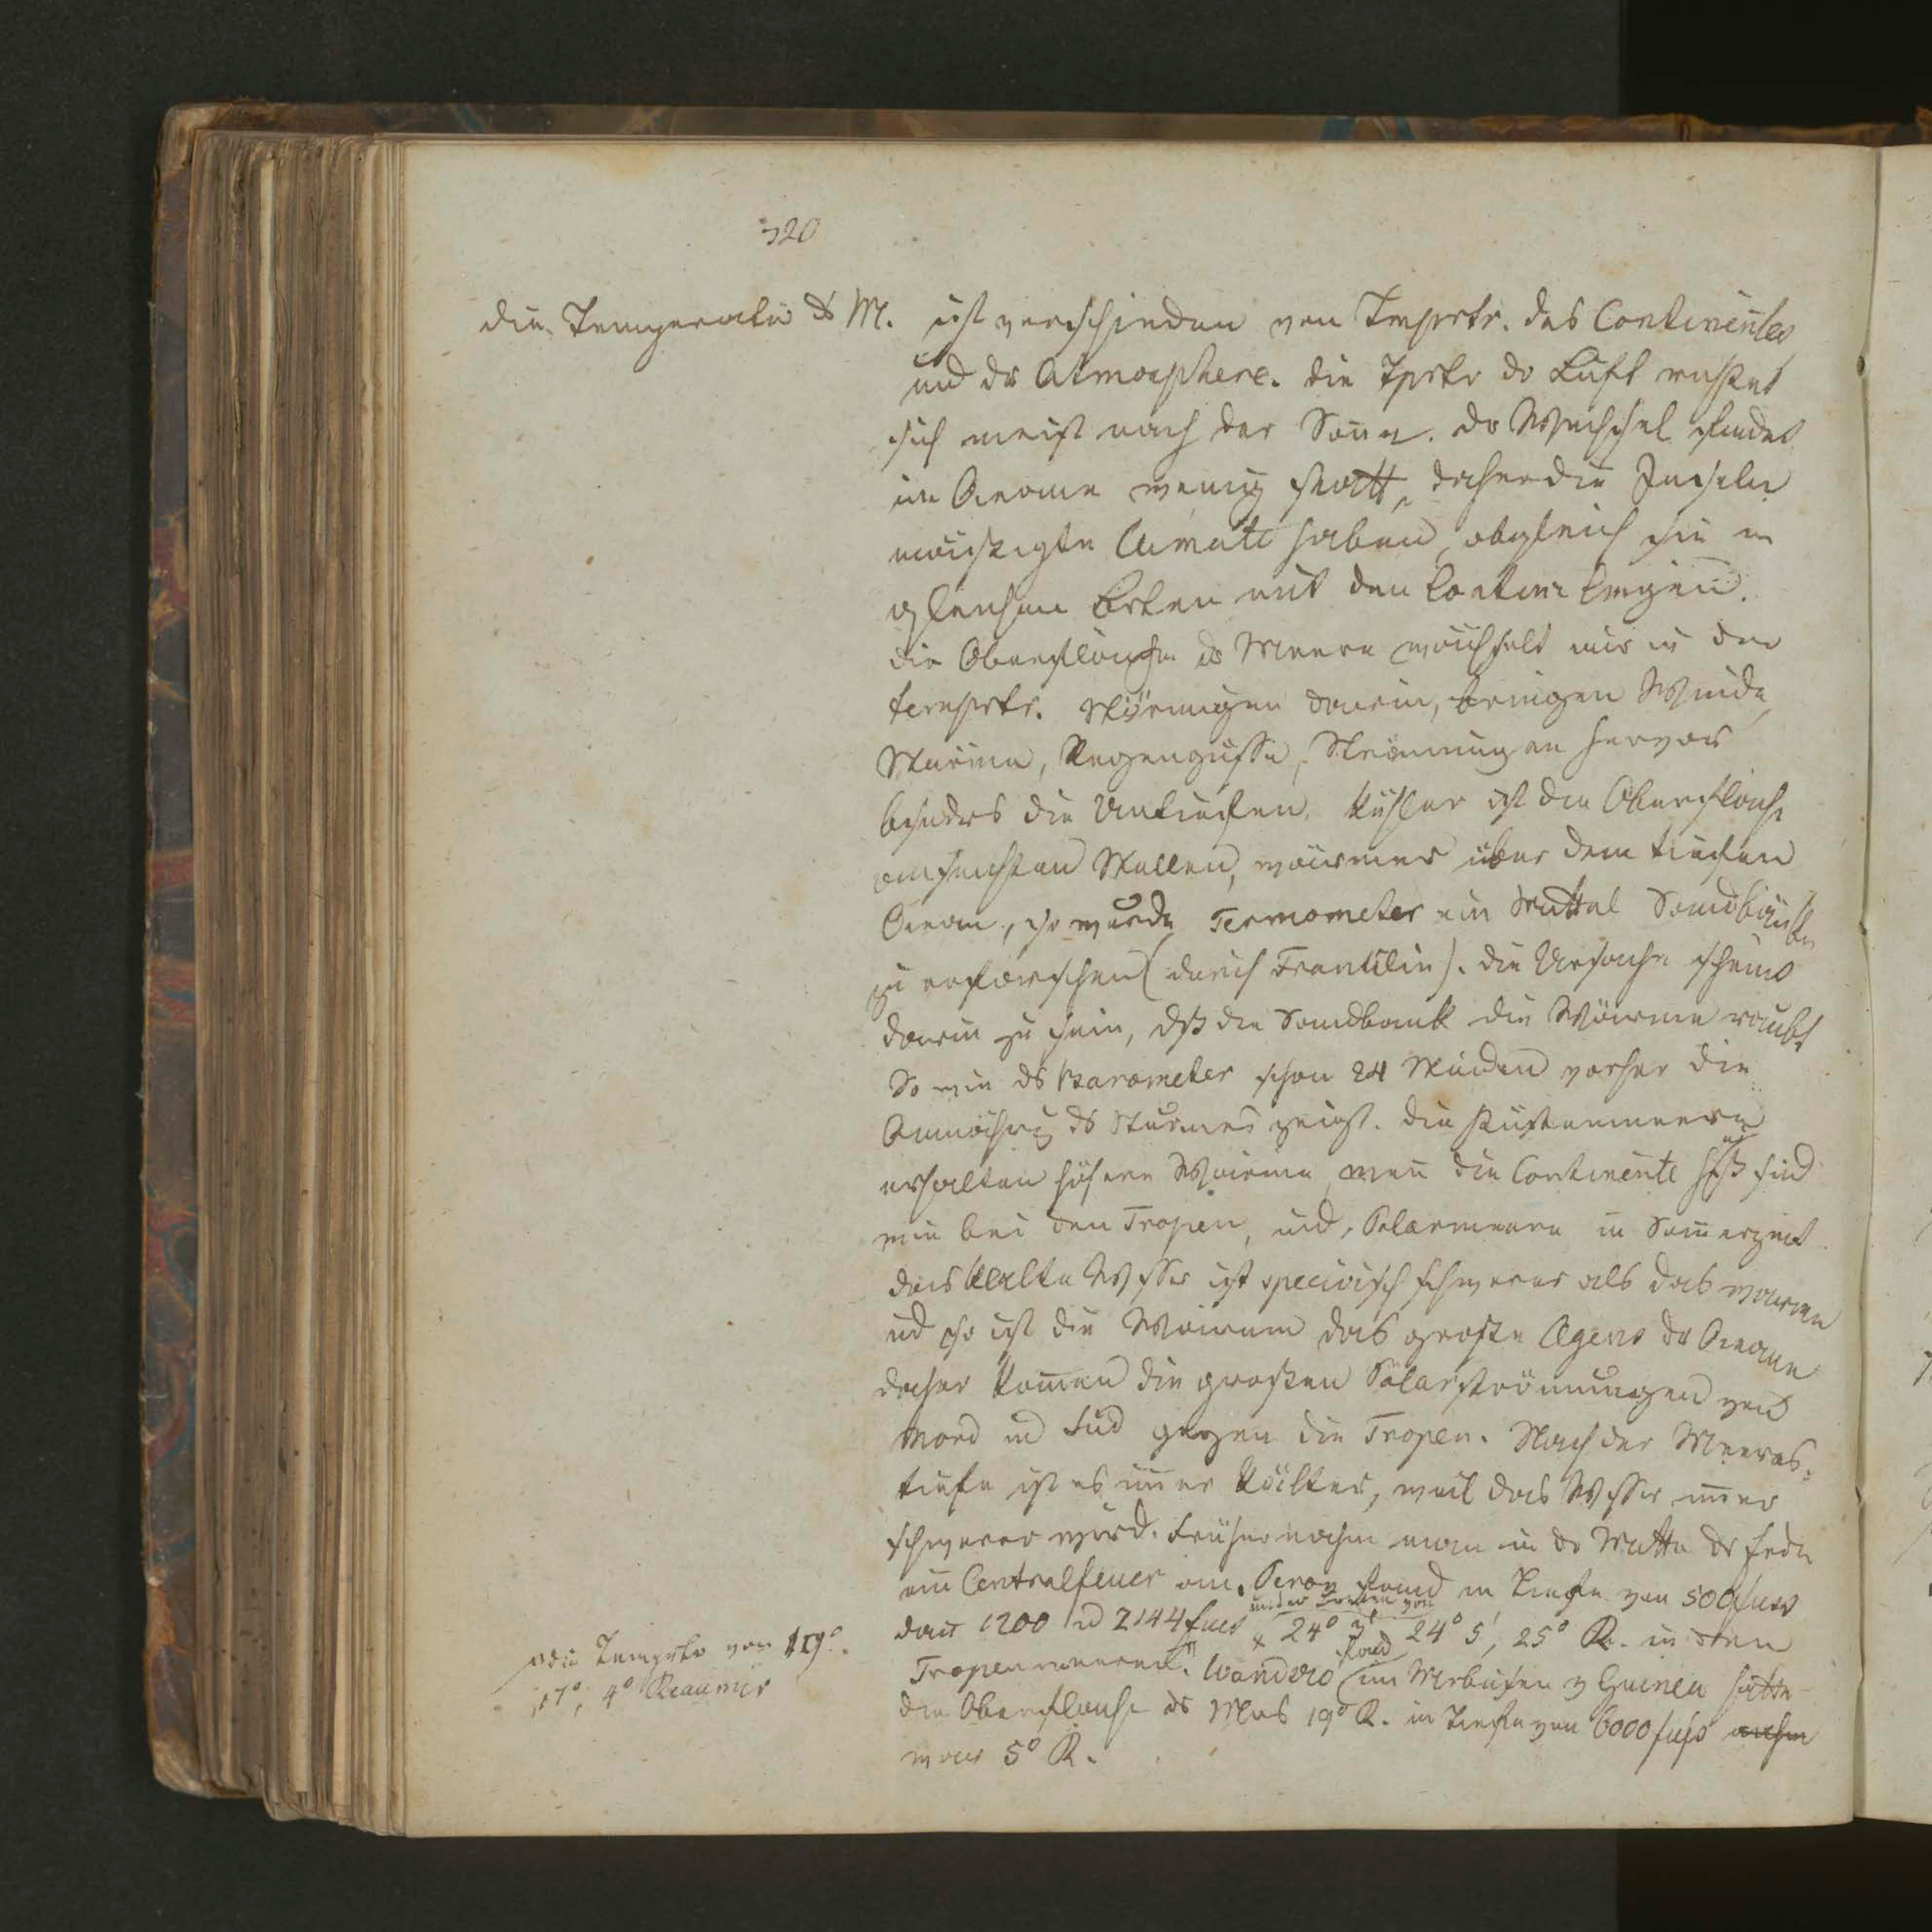 320
die Temperatur ds M. ist verschieden von Temprtr. des Continentes
und der Atmosphere. die Tprtr der Luft richtet
sich meist nach der Sonne. der Wechsel findet
im Oceane wenig statt, daher die Inseln
mäszigte Climate haben, obgleich sie in
gleichen Orten mit den Contin: liegen.
die Oberfläche ds Meeres wechselt nur in der
temprtr. Störungen darin, bringen Winde,
Stürme, Regengüsse, Strömungen hervor
besonders die Untiefen. Kühler ist die Oberfläche
an seichten Stellen, wärmer über dem tiefen
Ocean, so wurde Termometer ein Mittel Sandbänke
zu erforschen (durch Francklin). die Ursache scheint
darin zu sein, dß die Sandbank die Wärme raubt
So wie ds Barometer schon 24 Stunden vorher die
Annäherung ds Sturmes zeigt. die Küstenmeere
erhalten höhere Wärme, wenn die Continente heiß sind
wie bei den Tropen, und Polarmeere in Sommerzeit
das Kalte Wasser ist specivisch schwerer als das warme
und so ist die Wärme das große Agens der Oceane
daher kommen die großen Polarströmungen von
Nord und Süd gegen die Tropen. Nach der Meeres-
tiefe ist es immer kälter, weil das Wasser immer
schwerer wird. Früher nahm man in der Mitte der Erde
ein Centralfeuer an. Peron fand in Tiefe von 500 fuß
dann 1200 und 2144 fuß unter Breiten von 24° 24° 5', 25° R. in den
die Temprtr von 19°.
17°, 4° Reaumur
Tropenmeeren. fand im Meerbusen v Guinea hatte
die Oberfläche ds Mers 19° R. in Tiefe von 6000 fuß
war 5° R.